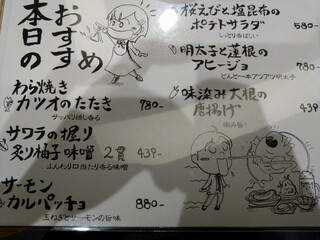 本日の
おすすめ
わら焼き
カツオのたたき 780-
サッパリ燻し香る
サワラの握り
炙り柚子味噌 2貫 439-
ふんわり口当たり香る味噌
サーモン
カルパッチョ 880-
玉ねぎとサーモンの旨味
桜えびと塩昆布の
ポテトサラダ 580-
しっとり香ばしい
明太子と蓮根の
アヒージョ 780-
どんと一本アツアツ明太子
味染み大根の
唐揚げ 439-